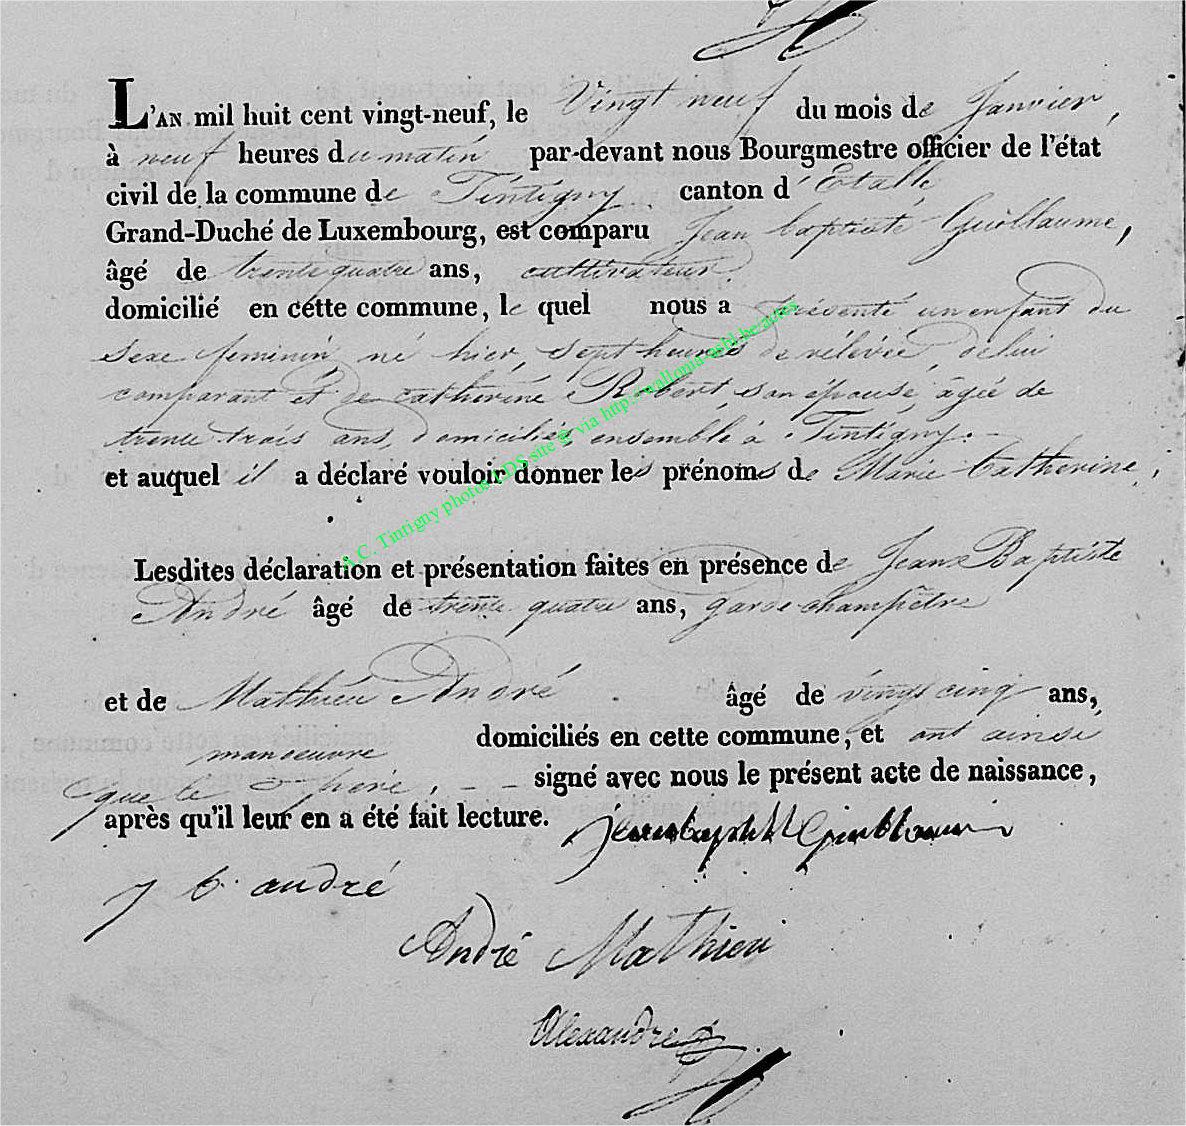 L'AN mil huit cent vingt-neuf, le Vingt neuf du mois de Janvier,
à neuf heures du matin par-devant nous Bourgmestre officier de l'état
civil de la commune de Tintigny canton d'Etalle
Grand-Duché de Luxembourg, est comparu Jean baptiste Guillaume,
âgé de trente quatre ans, cultivateur
domicilié en cette commune, le quel nous a présenté un enfant du
sexe feminin né hier, sept heures de rélévée, delui
comparant et de catherine Robert, son épouse, âgée de
trente trois ans, domiciliés ensemble à Tintigny.
et auquel il a déclaré vouloir donner les prénoms de Marie Catherine;
Lesdites déclaration et présentation faites en présence de Jean Baptiste
André âgé de trente quatre ans, garde-champêtre
et de Mathieu André âgé de vingt cinq ans,
manoeuvre domiciliés en cette commune, et ont ainsi
que le père, - - signé avec nous le présent acte de naissance,
après qu'il leur en a été fait lecture. Jean baptist Guillaume
j b. andré
André Mathieu
Alexandre
A.C. Tintigny photos LDS site © via http://wallonia-asbl.be/actes